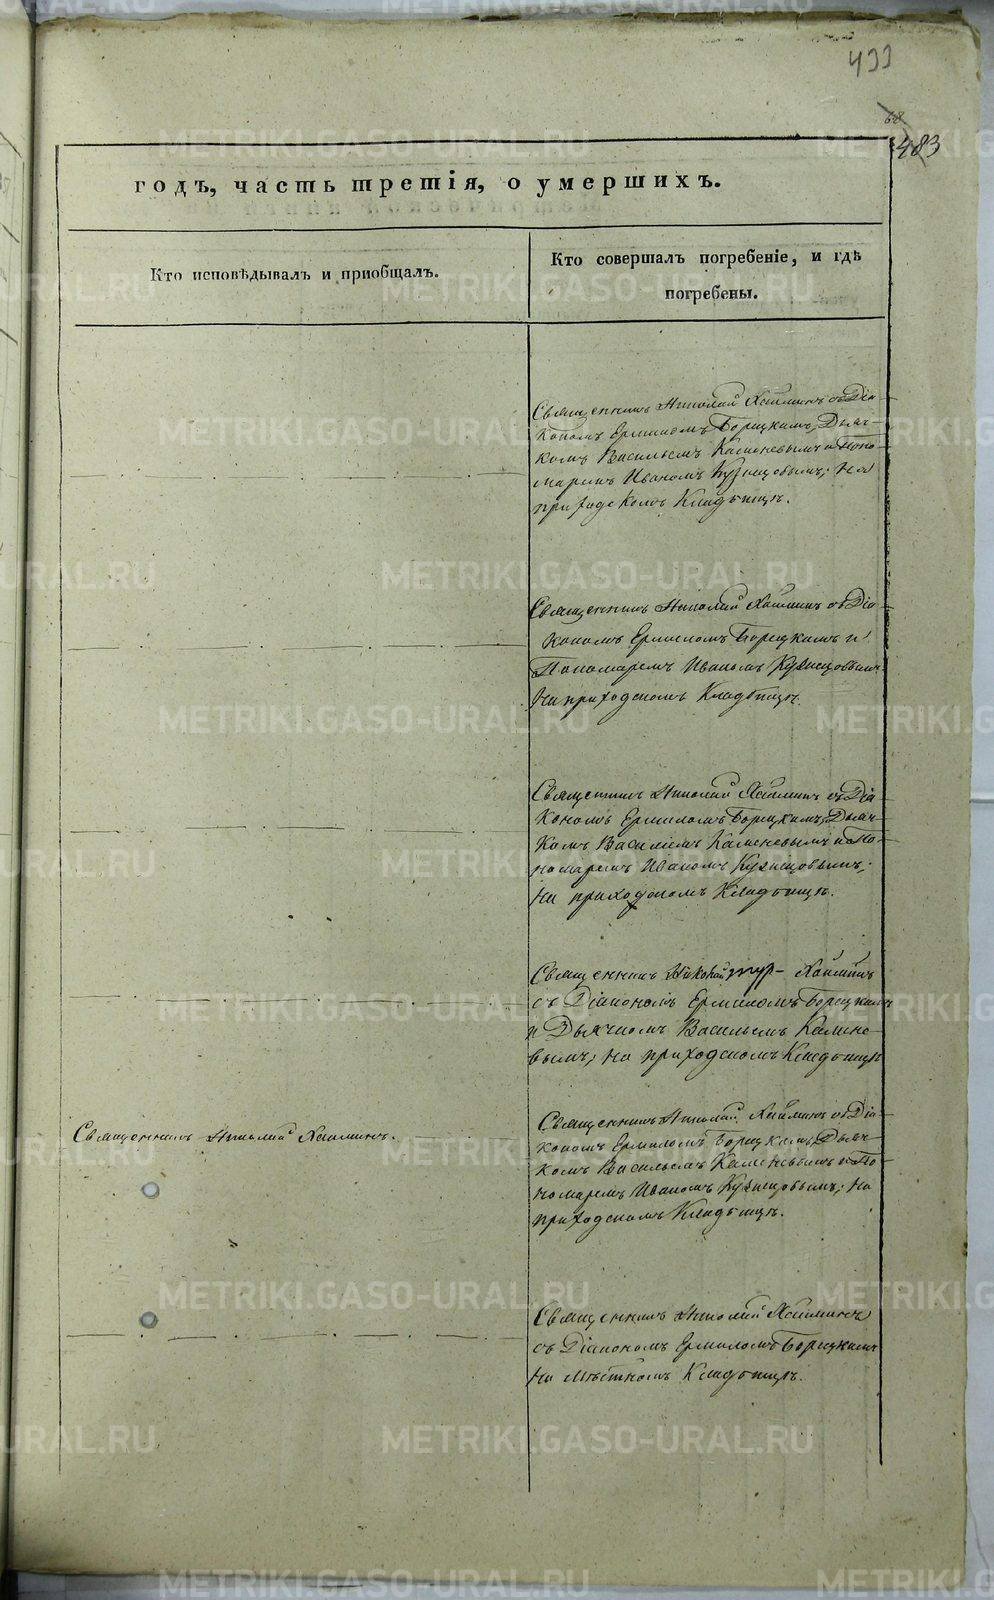 433
68
483
годъ, часть третія, о умершихъ.
Кто исповѣдывалъ и приобщалъ.
Кто совершалъ погребеніе, и гдѣ
погребены.
Священникъ Николай Хайминъ съ Діа-
кономъ Ермиломъ Борецкимъ, Дьяч-
комъ Васильемъ Каменевымъ и Поно-
маремъ Иваномъ Кузнецовымъ; На
приходскомъ Кладѣищѣ.
Священникъ Николай Хайминъ съ Діа-
кономъ Ермиломъ Борецкимъ и
Пономаремъ Иваномъ Кузнецовымъ
На приходскомъ Кладѣищѣ.
Священникъ Николай Хайминъ съ Діа-
кономъ Ермиломъ Борецкимъ, Дьяч-
комъ Васильемъ Каменевымъ и По-
номаремъ Иваномъ Кузнецовымъ;
На приходскомъ Кладѣищѣ.
Священникъ Николай Хайминъ
съ Діакономъ Ермиломъ Борецкимъ
и Дьячкомъ Васильемъ Камене-
вымъ; на приходскомъ Кладѣищѣ
Священникъ Николай Хайминъ.
Священникъ Николай Хайминъ съ Діа-
кономъ Ермиломъ Борецкимъ, Дьяч-
комъ Васильемъ Каменевымъ и По-
номаремъ Иваномъ Кузнецовымъ; На
приходскомъ Кладѣищѣ.
Священникъ Николай Хайминъ
съ Діакономъ Ермиломъ Борецкимъ
На мѣстномъ Кладѣищѣ.
METRIKI.GASO-URAL.RU